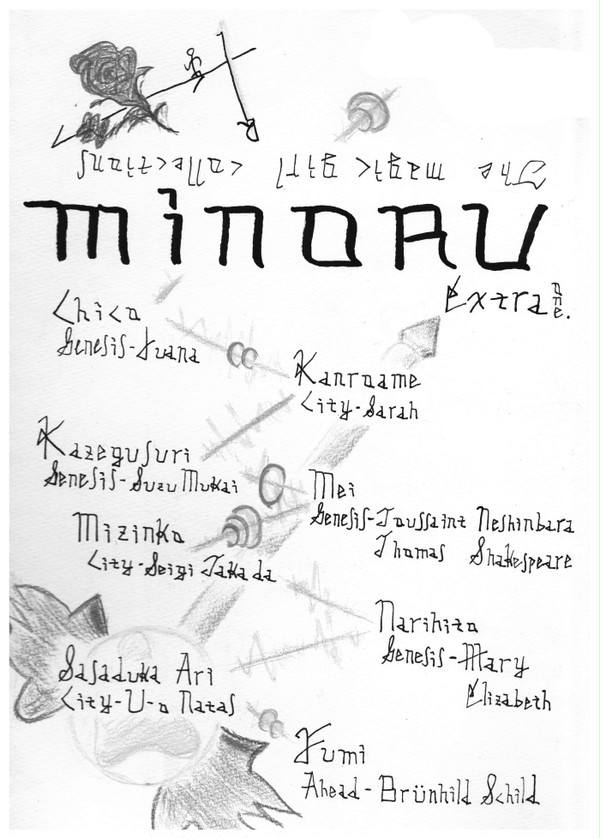 The magic girl collections
minoru
Extra one.
Chico
Genesis-Juana
Kanroame
City-Sarah
Kazegusuri
Genesis-Suzu Mukai
Mei
Genesis-Toussaint Neshinbara
Thomas Shakespeare
Mizinko
City-Seigi Takada
Narihito
Genesis-Mary
Elizabeth
Sasaduka Ari
City-U-o Natas
Fumi
Ahead-Brünhild Schild